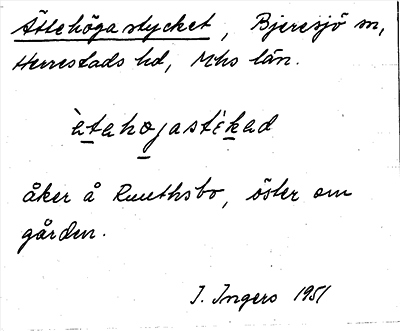 Ättehögastycket, Bjeresjö sn,
Herrestads hd, Mhs län.
ètahojastìkad
åker å Ruuthsbo, öster om
gården.
I. Ingers 1951